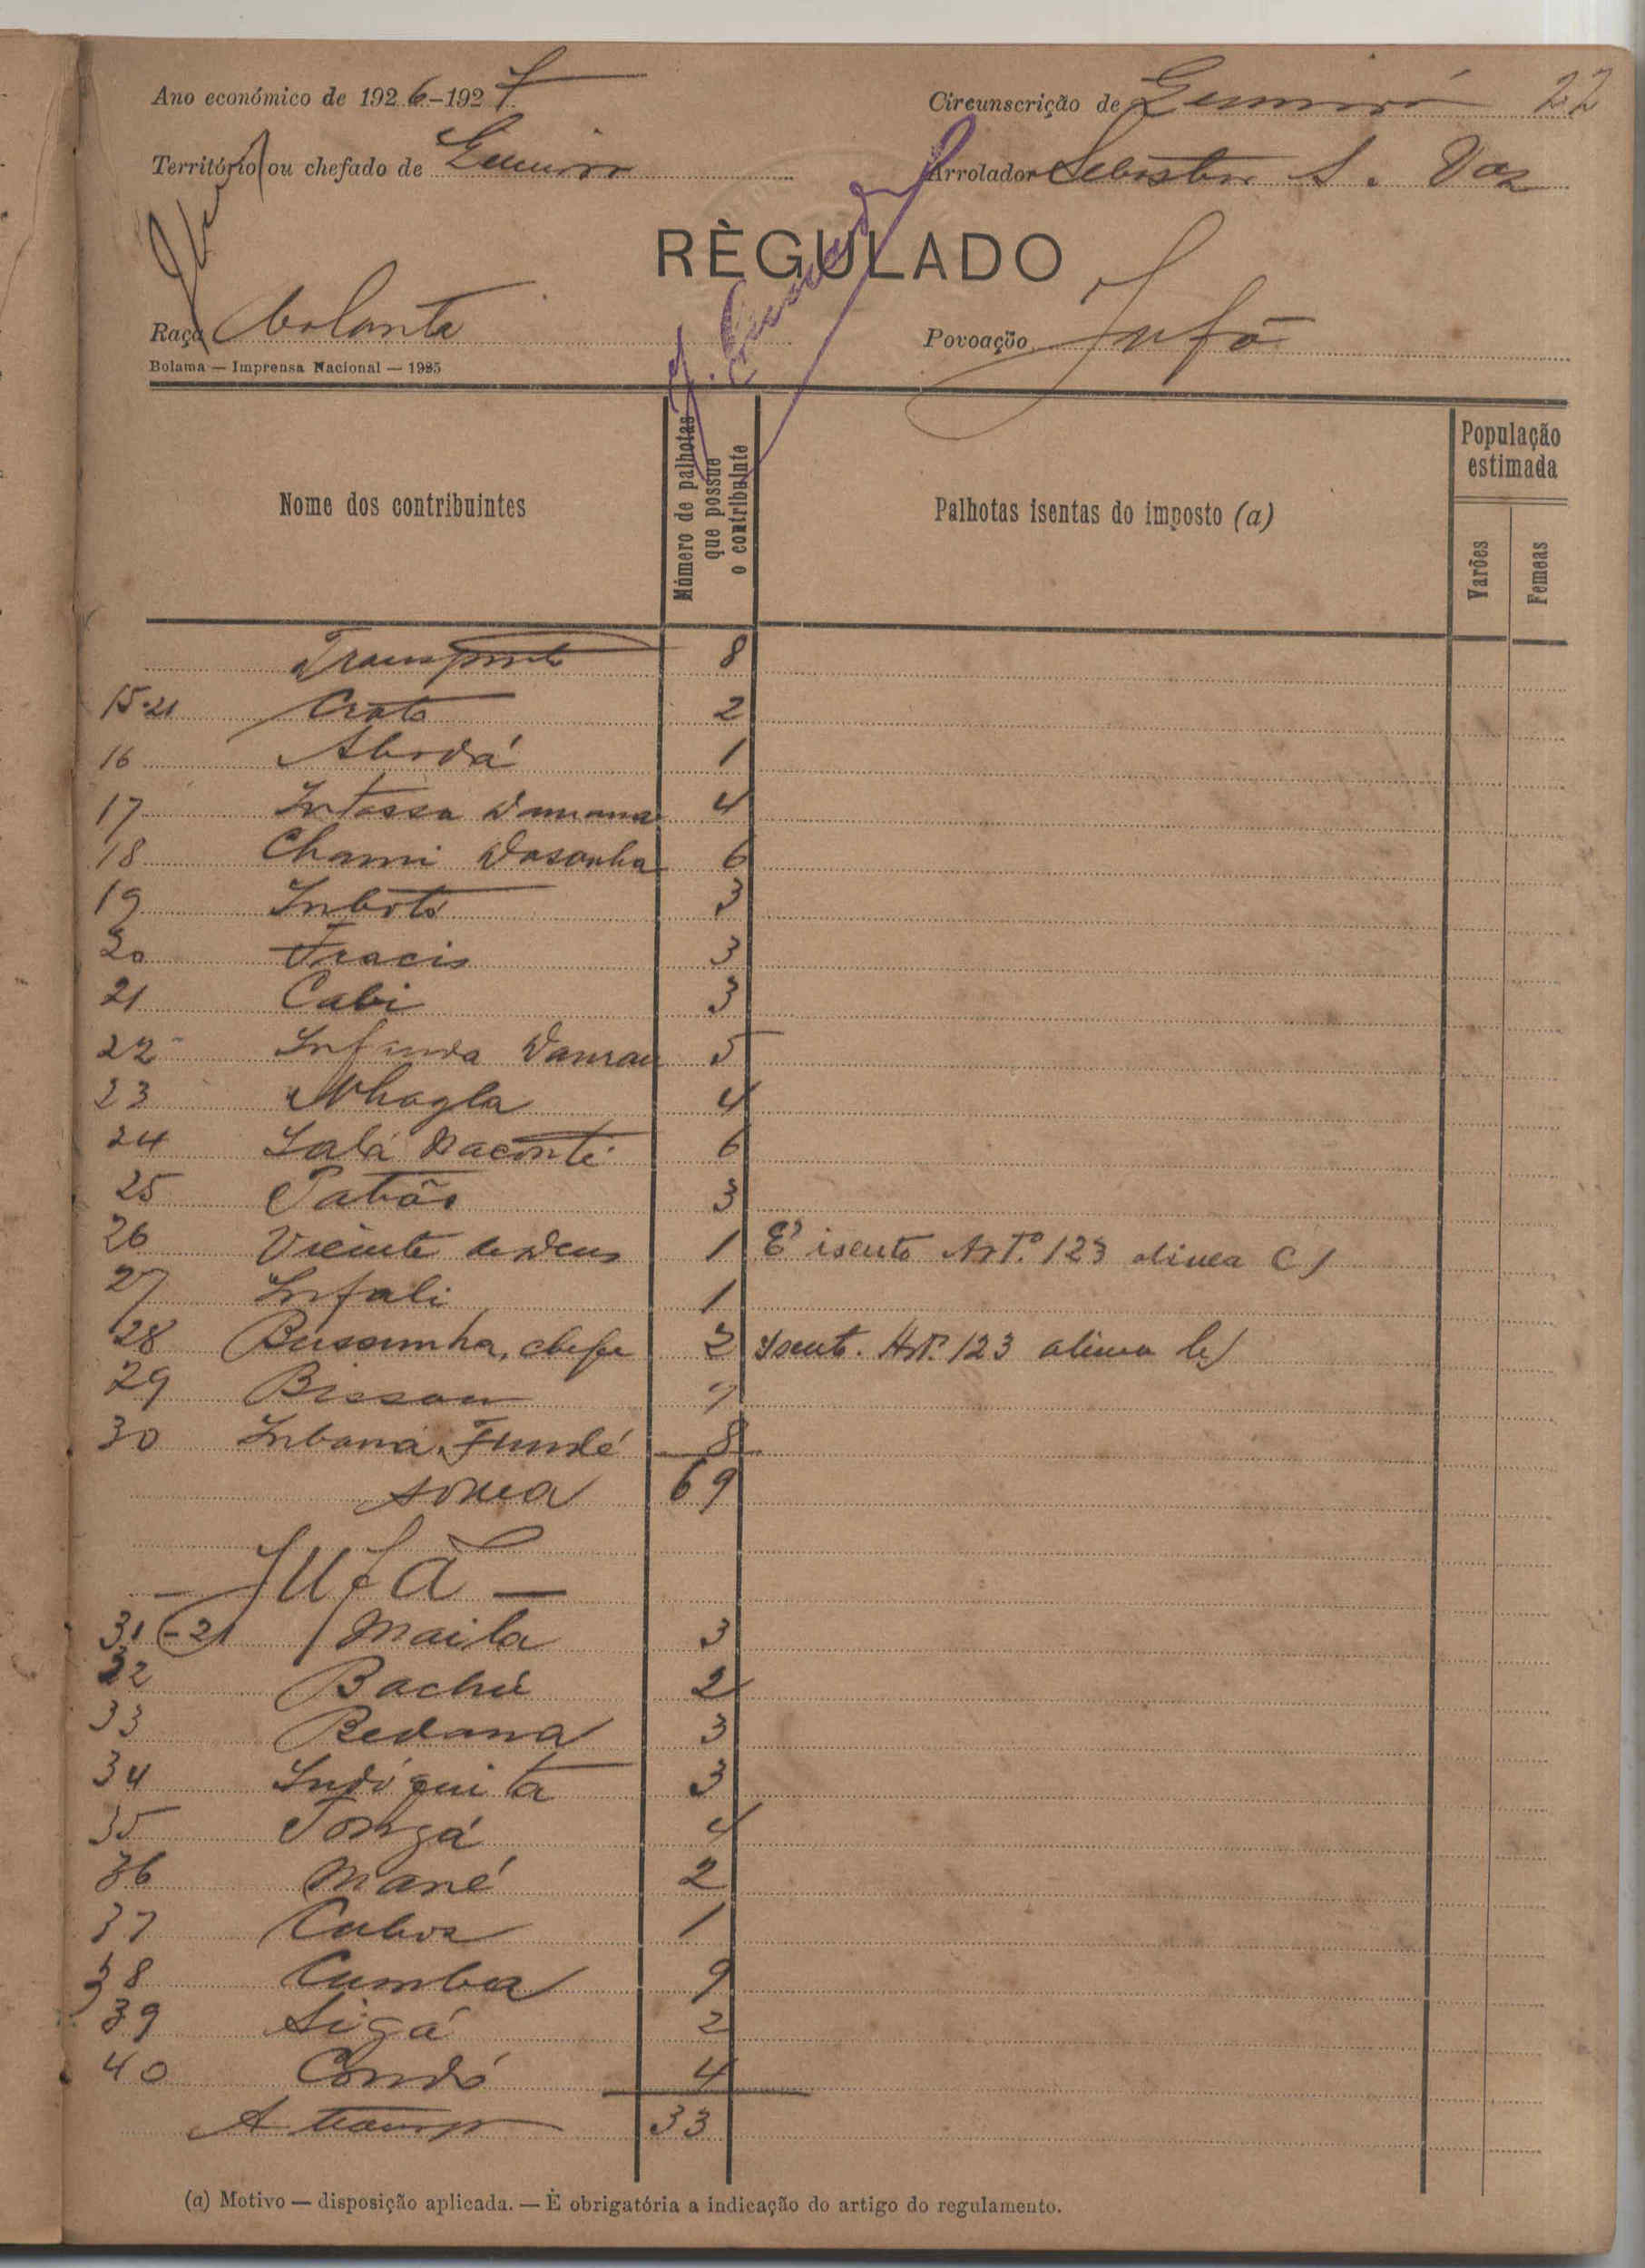 Ano económico de 1926-1927
Circunscrição de 22
Território ou chefado de
Arrolador S. Vaz
RÈGULADO
Raça Balanta
Povoação Jufá
Bolama — Imprensa Nacional — 1925
Nome dos contribuintes
Número de palhotas que possue o contribuinte
Palhotas isentas do imposto (a)
População estimada
Varões
Femeas
Transporte 8
15-21 Crato 2
16 Abordá 1
17 4
18 6
19 Inboto 3
20 Fracis 3
21 Cabi 3
22 Infunda 5
23 Nhagla 4
24 6
25 3
26 Vicente de Deus 1 E' isento Art.º 123 alinea C)
27 Infali 1
28 Bussumha, chefe 2 Isent. Art.º 123 alinea b)
29 Bissau 7
30 Inbana Fundé 8
soma 69
— Jufá —
31-21 Maila 3
32 Bachu 2
33 Bedana 3
34 Indóquita 3
35 Tongá 4
36 Mané 2
37 1
38 Cumba 9
39 Sigá 2
40 Condó 4
A transp 33
(a) Motivo — disposição aplicada. — È obrigatória a indicação do artigo do regulamento.